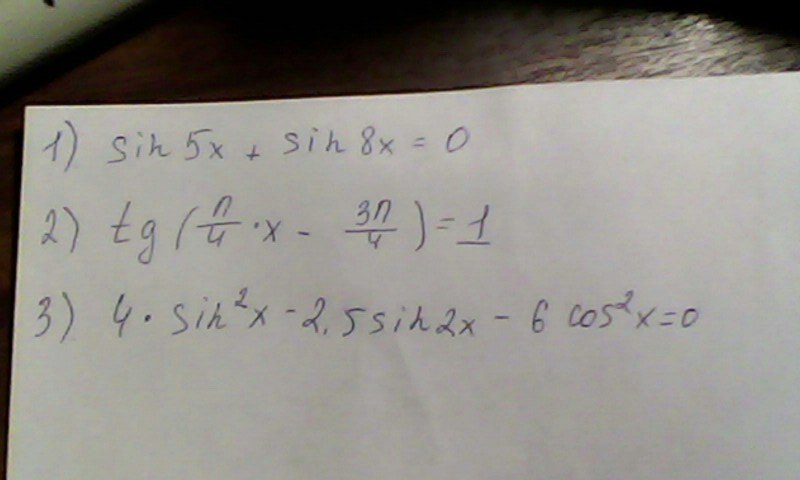 1) sin 5x + sin 8x = 0
2) tg (π/4 · x - 3π/4) = 1
3) 4 · sin²x - 2,5 sin 2x - 6 cos²x = 0